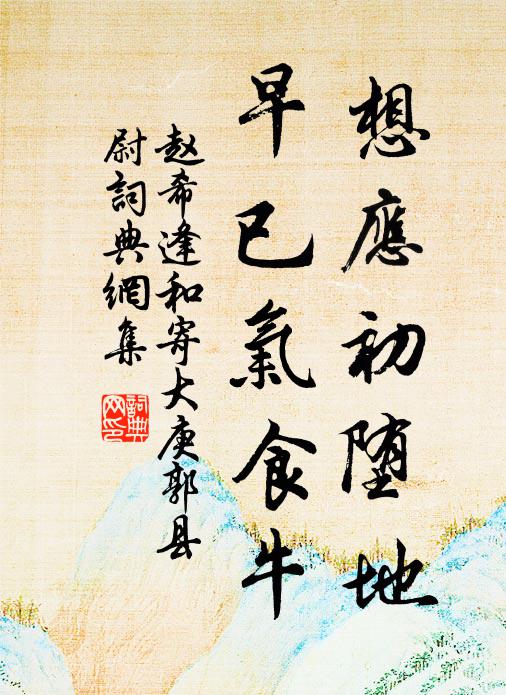 想應初堕地
早已氣食牛
赵希逢和寄大庾郭县
尉詞典網集
詞典
网印